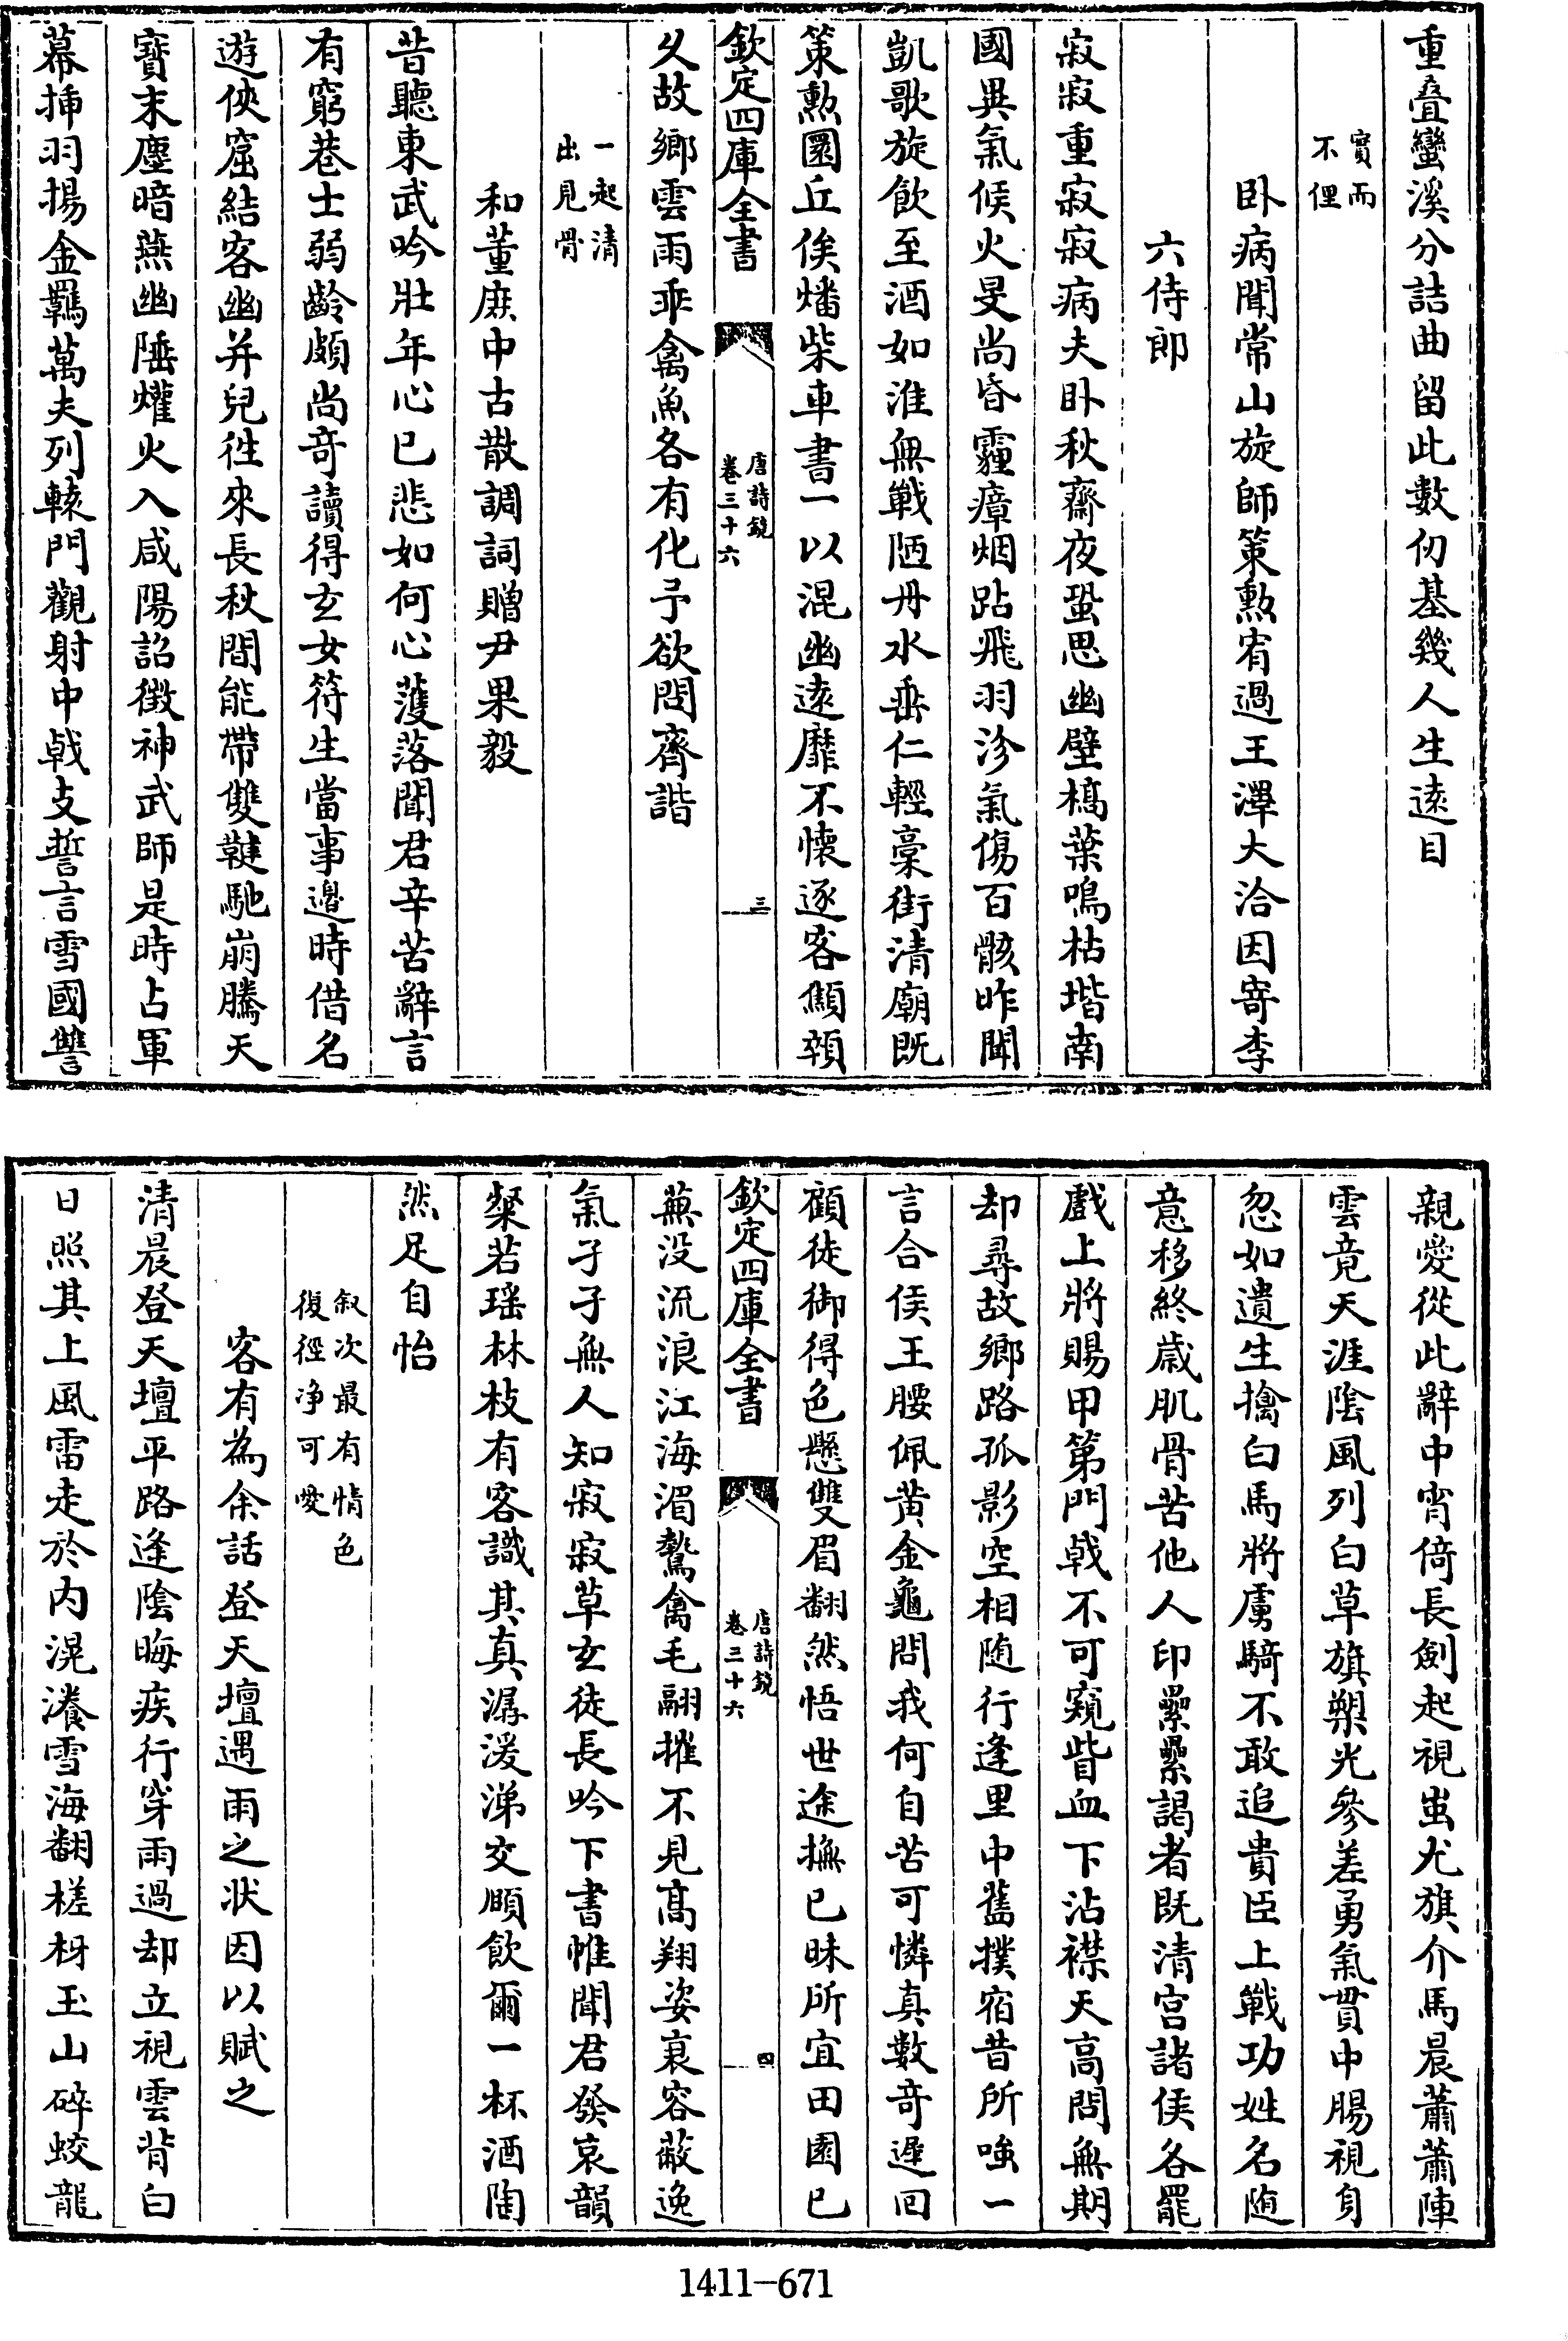 重疊蠻溪分詰曲留此數仞基幾人生遠目
實而
不俚
卧病聞常山旋師策勲宥過王澤大洽因寄李
六侍郎
寂寂重寂寂病夫卧秋齋夜蛩思幽壁槁葉鳴枯堦南
國異氣候火旻尚昏霾瘴烟跕飛羽沴氣傷百骸昨聞
凱歌旋飲至酒如淮無戰陋丹水垂仁輕稾街清廟既
策勲圜丘俟燔柴車書一以混幽遠靡不懷逐客顦顇
欽定四庫全書
唐詩鏡
卷三十六
三
久故鄉雲雨乖禽魚各有化予欲問齊諧
一起清
出見骨
和董庶中古散調詞贈尹果毅
昔聽東武吟壯年心已悲如何心濩落聞君辛苦辭言
有窮巷士弱齡頗尚奇讀得玄女符生當事邊時借名
遊俠窟結客幽并兒徃來長秋間能帶雙鞬馳崩騰天
寶末塵暗燕幽陲爟火入咸陽詔徴神武師是時占軍
幕揷羽揚金羈萬夫列轅門觀射中戟支誓言雪國讐
親愛從此辭中宵倚長劍起視蚩尤旗介馬晨蕭蕭陣
雲竟天涯陰風列白草旗槊光參差勇氣貫中腸視身
忽如遺生擒白馬將虜騎不敢追貴臣上戰功姓名随
意移終歲肌骨苦他人印纍纍謁者既清宫諸侯各罷
戲上將賜甲第門戟不可窺眥血下沾襟天高問無期
却尋故鄉路孤影空相随行逢里中舊撲宿昔所嗤一
言合侯王腰佩黄金龜問我何自苦可憐真數奇遲回
顧徒御得色懸雙眉翻然悟世途撫已昧所宜田園已
欽定四庫全書
唐詩鏡
卷三十六
四
蕪没流浪江海湄鷙禽毛翮摧不見高翔姿衰容蔽逸
氣孑孑無人知寂寂草玄徒長吟下書帷聞君發哀韻
粲若瑶林枝有客識其真潺湲涕交頤飲爾一杯酒陶
然足自怡
叙次最有情色
復徑净可愛
客有為余話登天壇遇雨之状因以賦之
清晨登天壇平路逢陰晦疾行穿雨過却立視雲背白
日照其上風雷走於内滉瀁雪海翻槎枒玉山碎蛟龍
1411-671